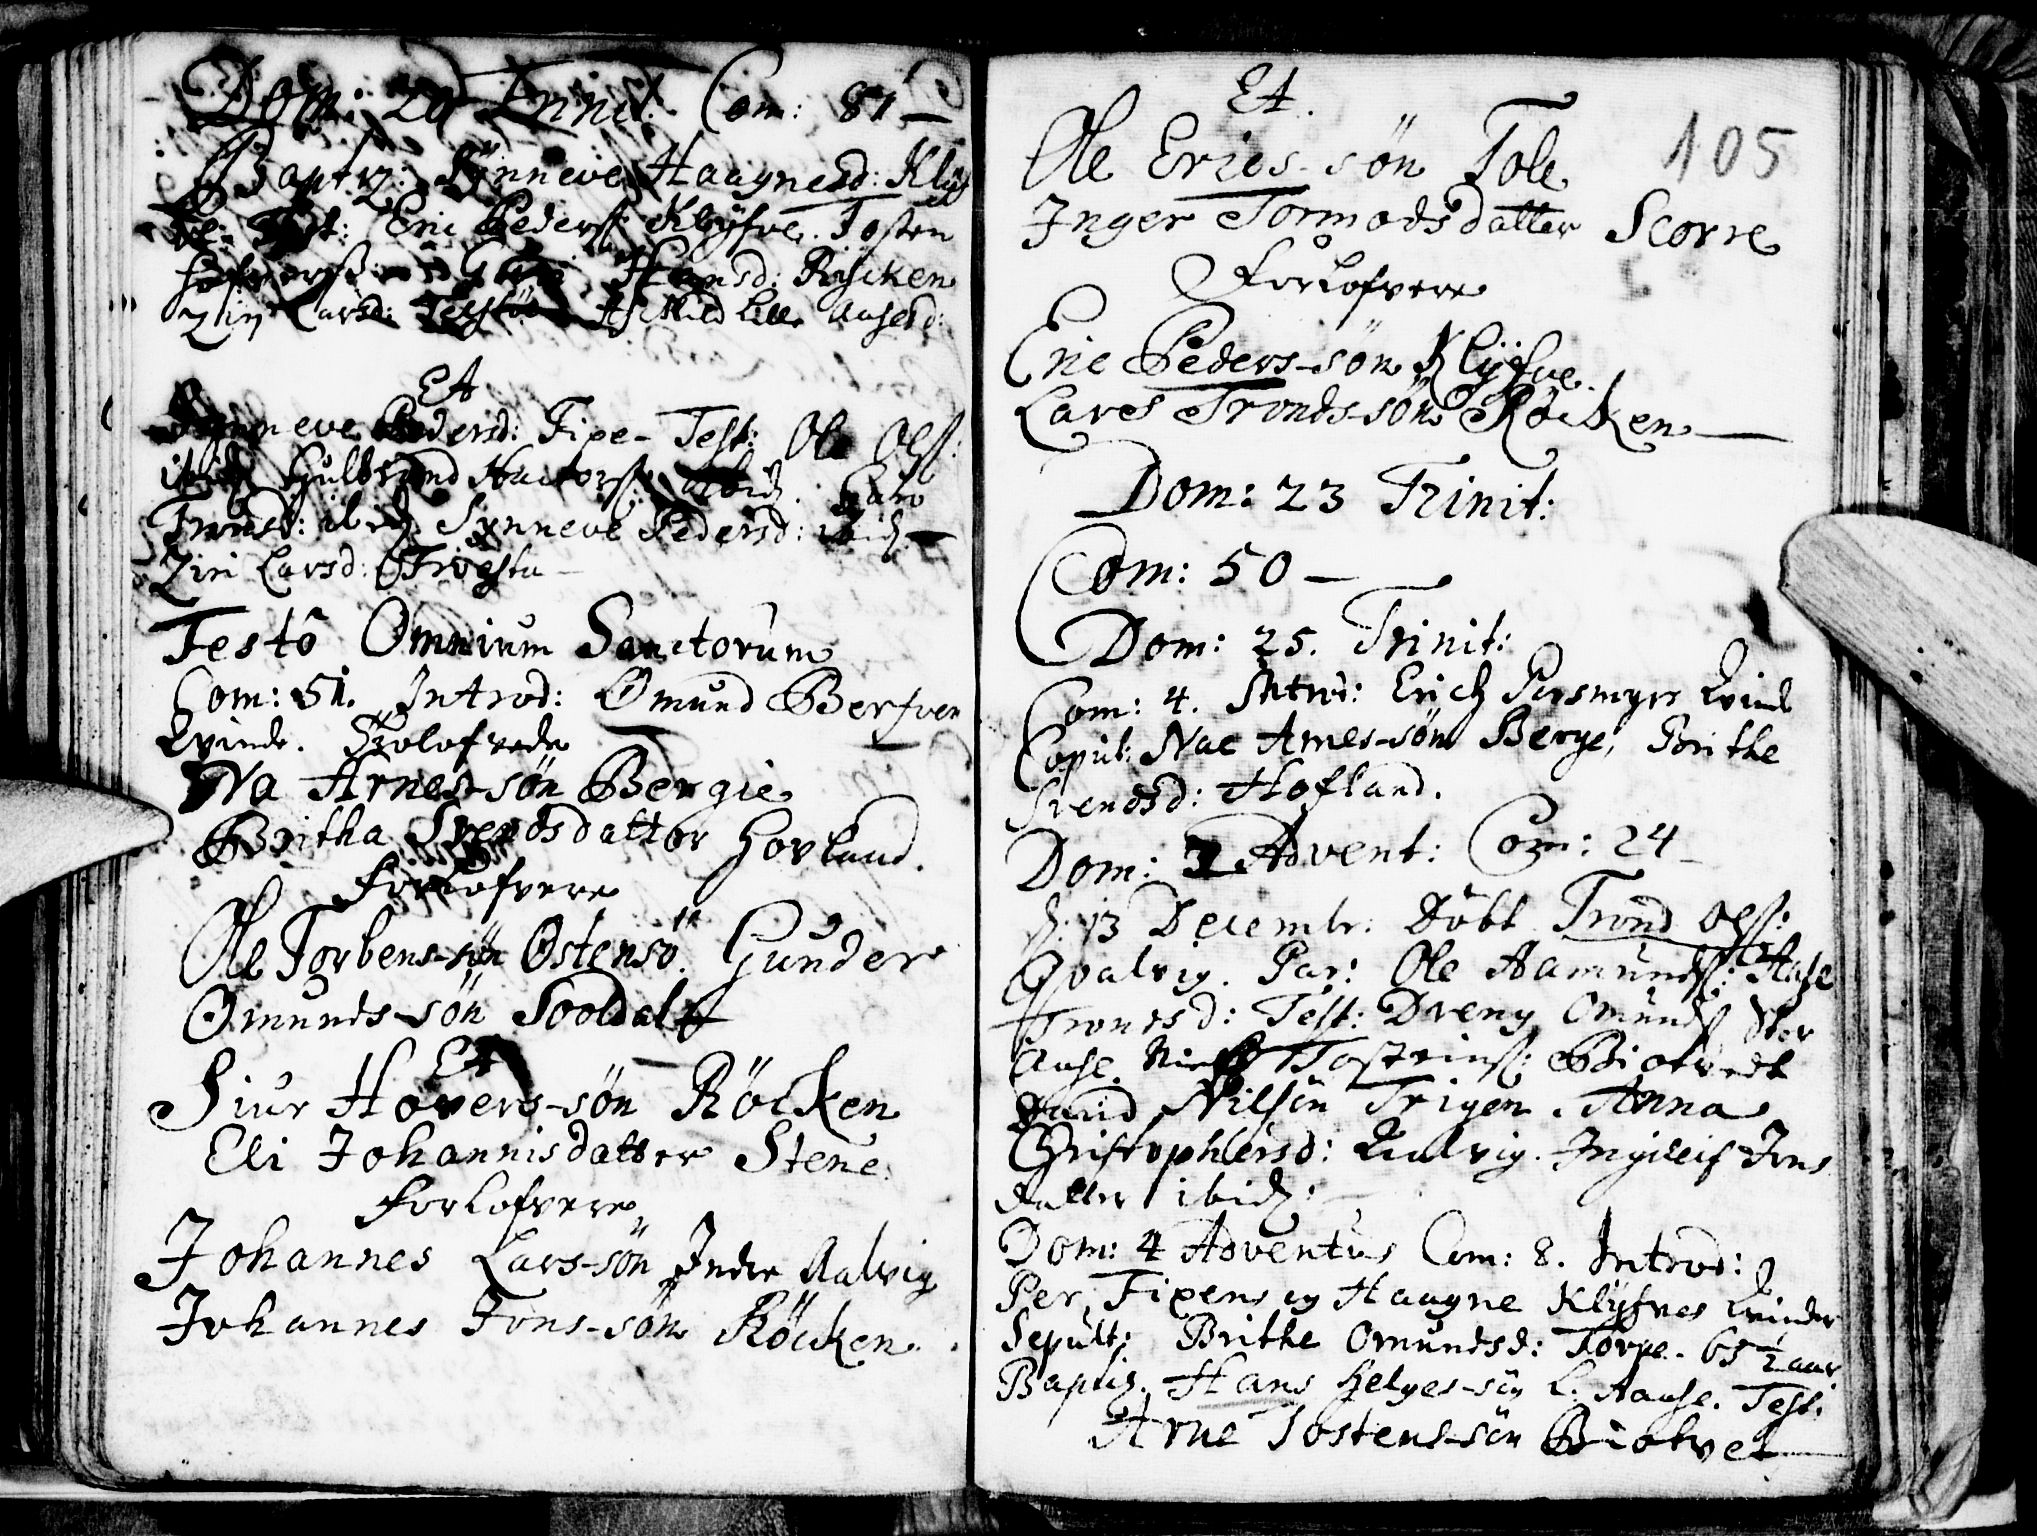 Dom: 20 Trinit. Com: 81 –
Baptiz: Synneve Haagnesd: Klÿf
ve. Test: Eric Pederss Klÿfve. Tosten
Hansd: Röcken
Larsd: Aaserd:
Et
Synneve Pedersd: Fixe – Test: Ole Olss:
ibid Gulbrand ibid.
Tronsd: ibid Synneve Pedersd: ibid –
Ziri Larsd:
Festô Omnium Sanctorum
Com: 51. Introd: Omund Berfven
Kvinde. Trolofvede
Na Arnes-sön Bergie
Britha Svendsdatter Hovland.
Forlofvere
Ole Torbens-sön Ostensö. Gunder
Omunds-sön Sooldal
Et
Siur Hovers-sön Röcken
Eli Johannisdatter Stene.
Forlofvere
Johannes Lars-sön Indre Aalvig
Johannes Jons-sön Röcken.
Et.
Ole Erics-sön Tole 105
Inger Tormodsdatter Scorre
Forlofvere
Eric Peders-sön Klÿfve.
Lares Tronds-sön Röcken –
Dom: 23 Trinit:
Com: 50 –
Dom: 25. Trinit:
Com: 4. Introd: Erich Kvinde
Copul: Nae Arnes-sön Berge, Brithe
Svendsd: Hofland.
Dom: Advent: Com: 24 –
d. 13 Decembr: Döbt Trond Olss:
Qvalvig. Par: Ole Aamundss: Aase
Tronsd: Test: Dreng Omundss Stor
Aase. Tosteins: Biotvedt
David Nilsön Trigen. Anna
Christophersd: Kalvig. Ingileif Jons
datter ibid:
Dom: 4 Adventus Com: 8. Introd:
Per Fixens og Haagne Klÿfves Kvinder
Sepult: Brithe Omundsd: Torpe. 65 ½ aar
Baptiz. Hans Helges-sön L. Aase. Test:
Arne Tostens-sön Biotvet